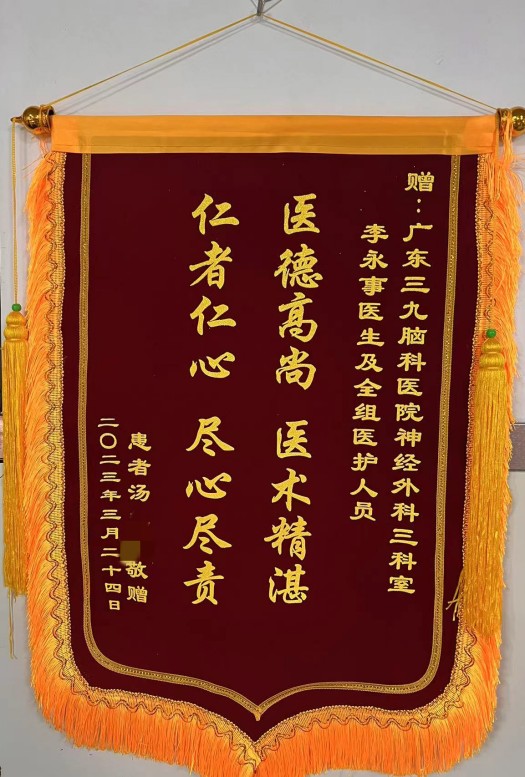 赠：广东三九脑科医院神经外科三科室
李永事医生及全组医护人员
医德高尚 医术精湛
仁者仁心 尽心尽责
患者汤 敬赠
二〇二三年三月二十四日